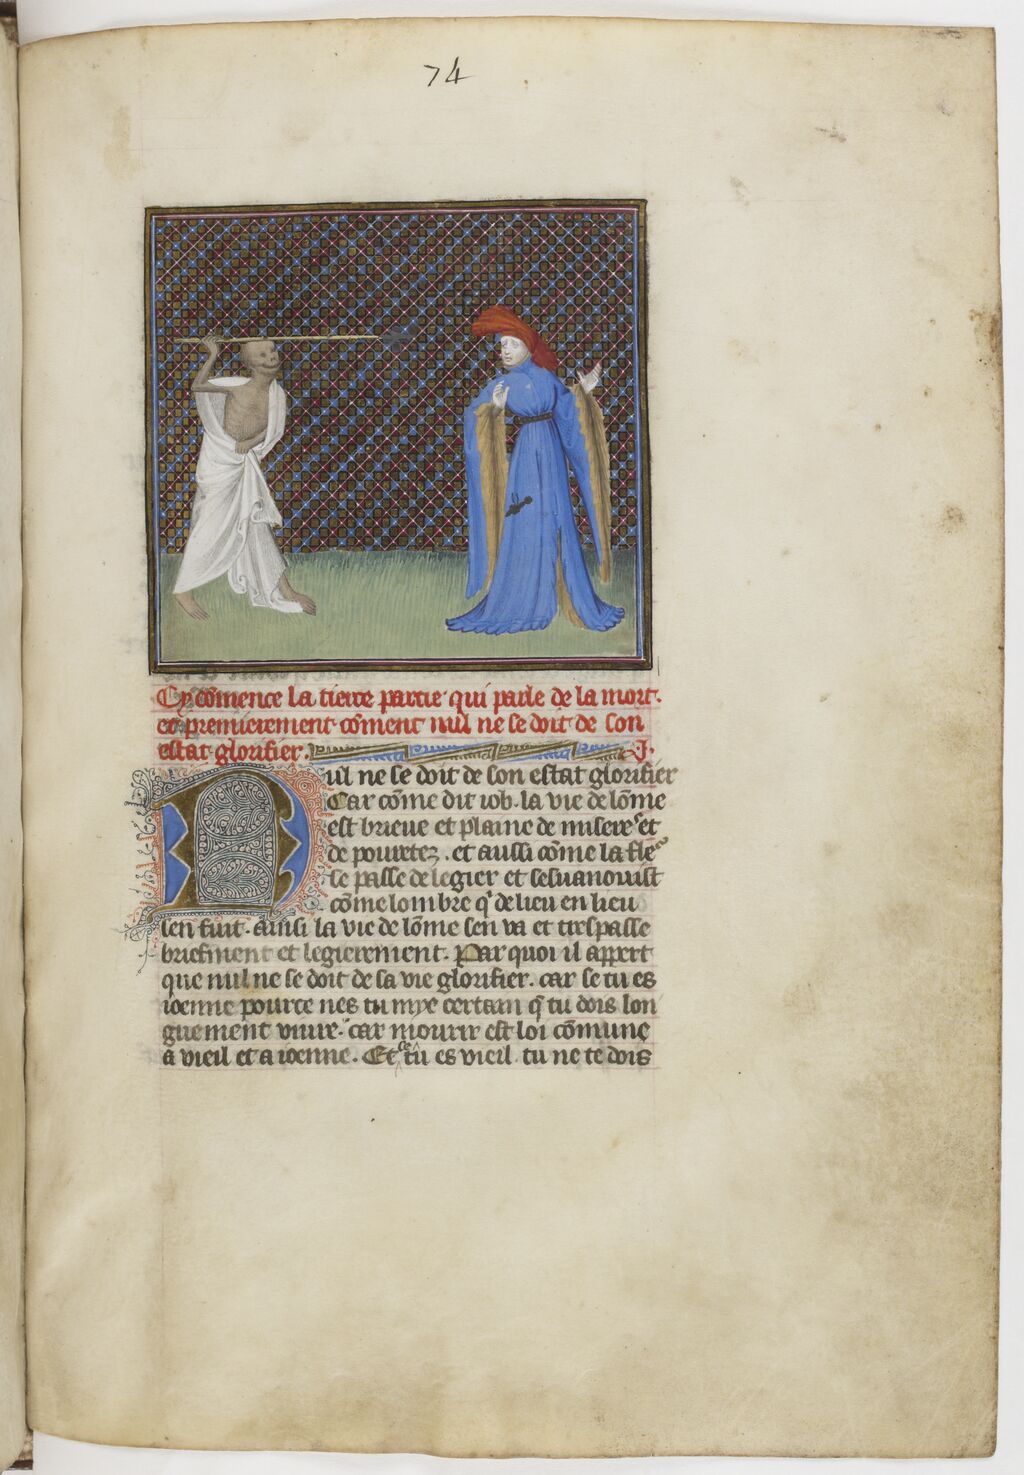 74
Cy cōmence la tierce partie qui parle de la mort.
et premierement cōment nul ne se doit de son
estat glorifier. J.
Nul ne se doit de son estat glorifier
Car cōme dit iob. la vie de lōme
est brieue et plaine de misere et
de pouretez. et aussi cōme la fle᷑
se passe de legier et sesuanouist
cōme lombre q̄ de lieu en lieu
sen fuit. ainsi la vie de lōme sen va et trespasse
briefment et legierement. Par quoi il appert
que nul ne se doit de sa vie glorifier. car se tu es
ioenne pource nes tu mye certain q̄ tu dois lon
guement viure. car mourir est loi cōmune
a vieil et a ioenne. Et ce tu es vieil tu ne te dois